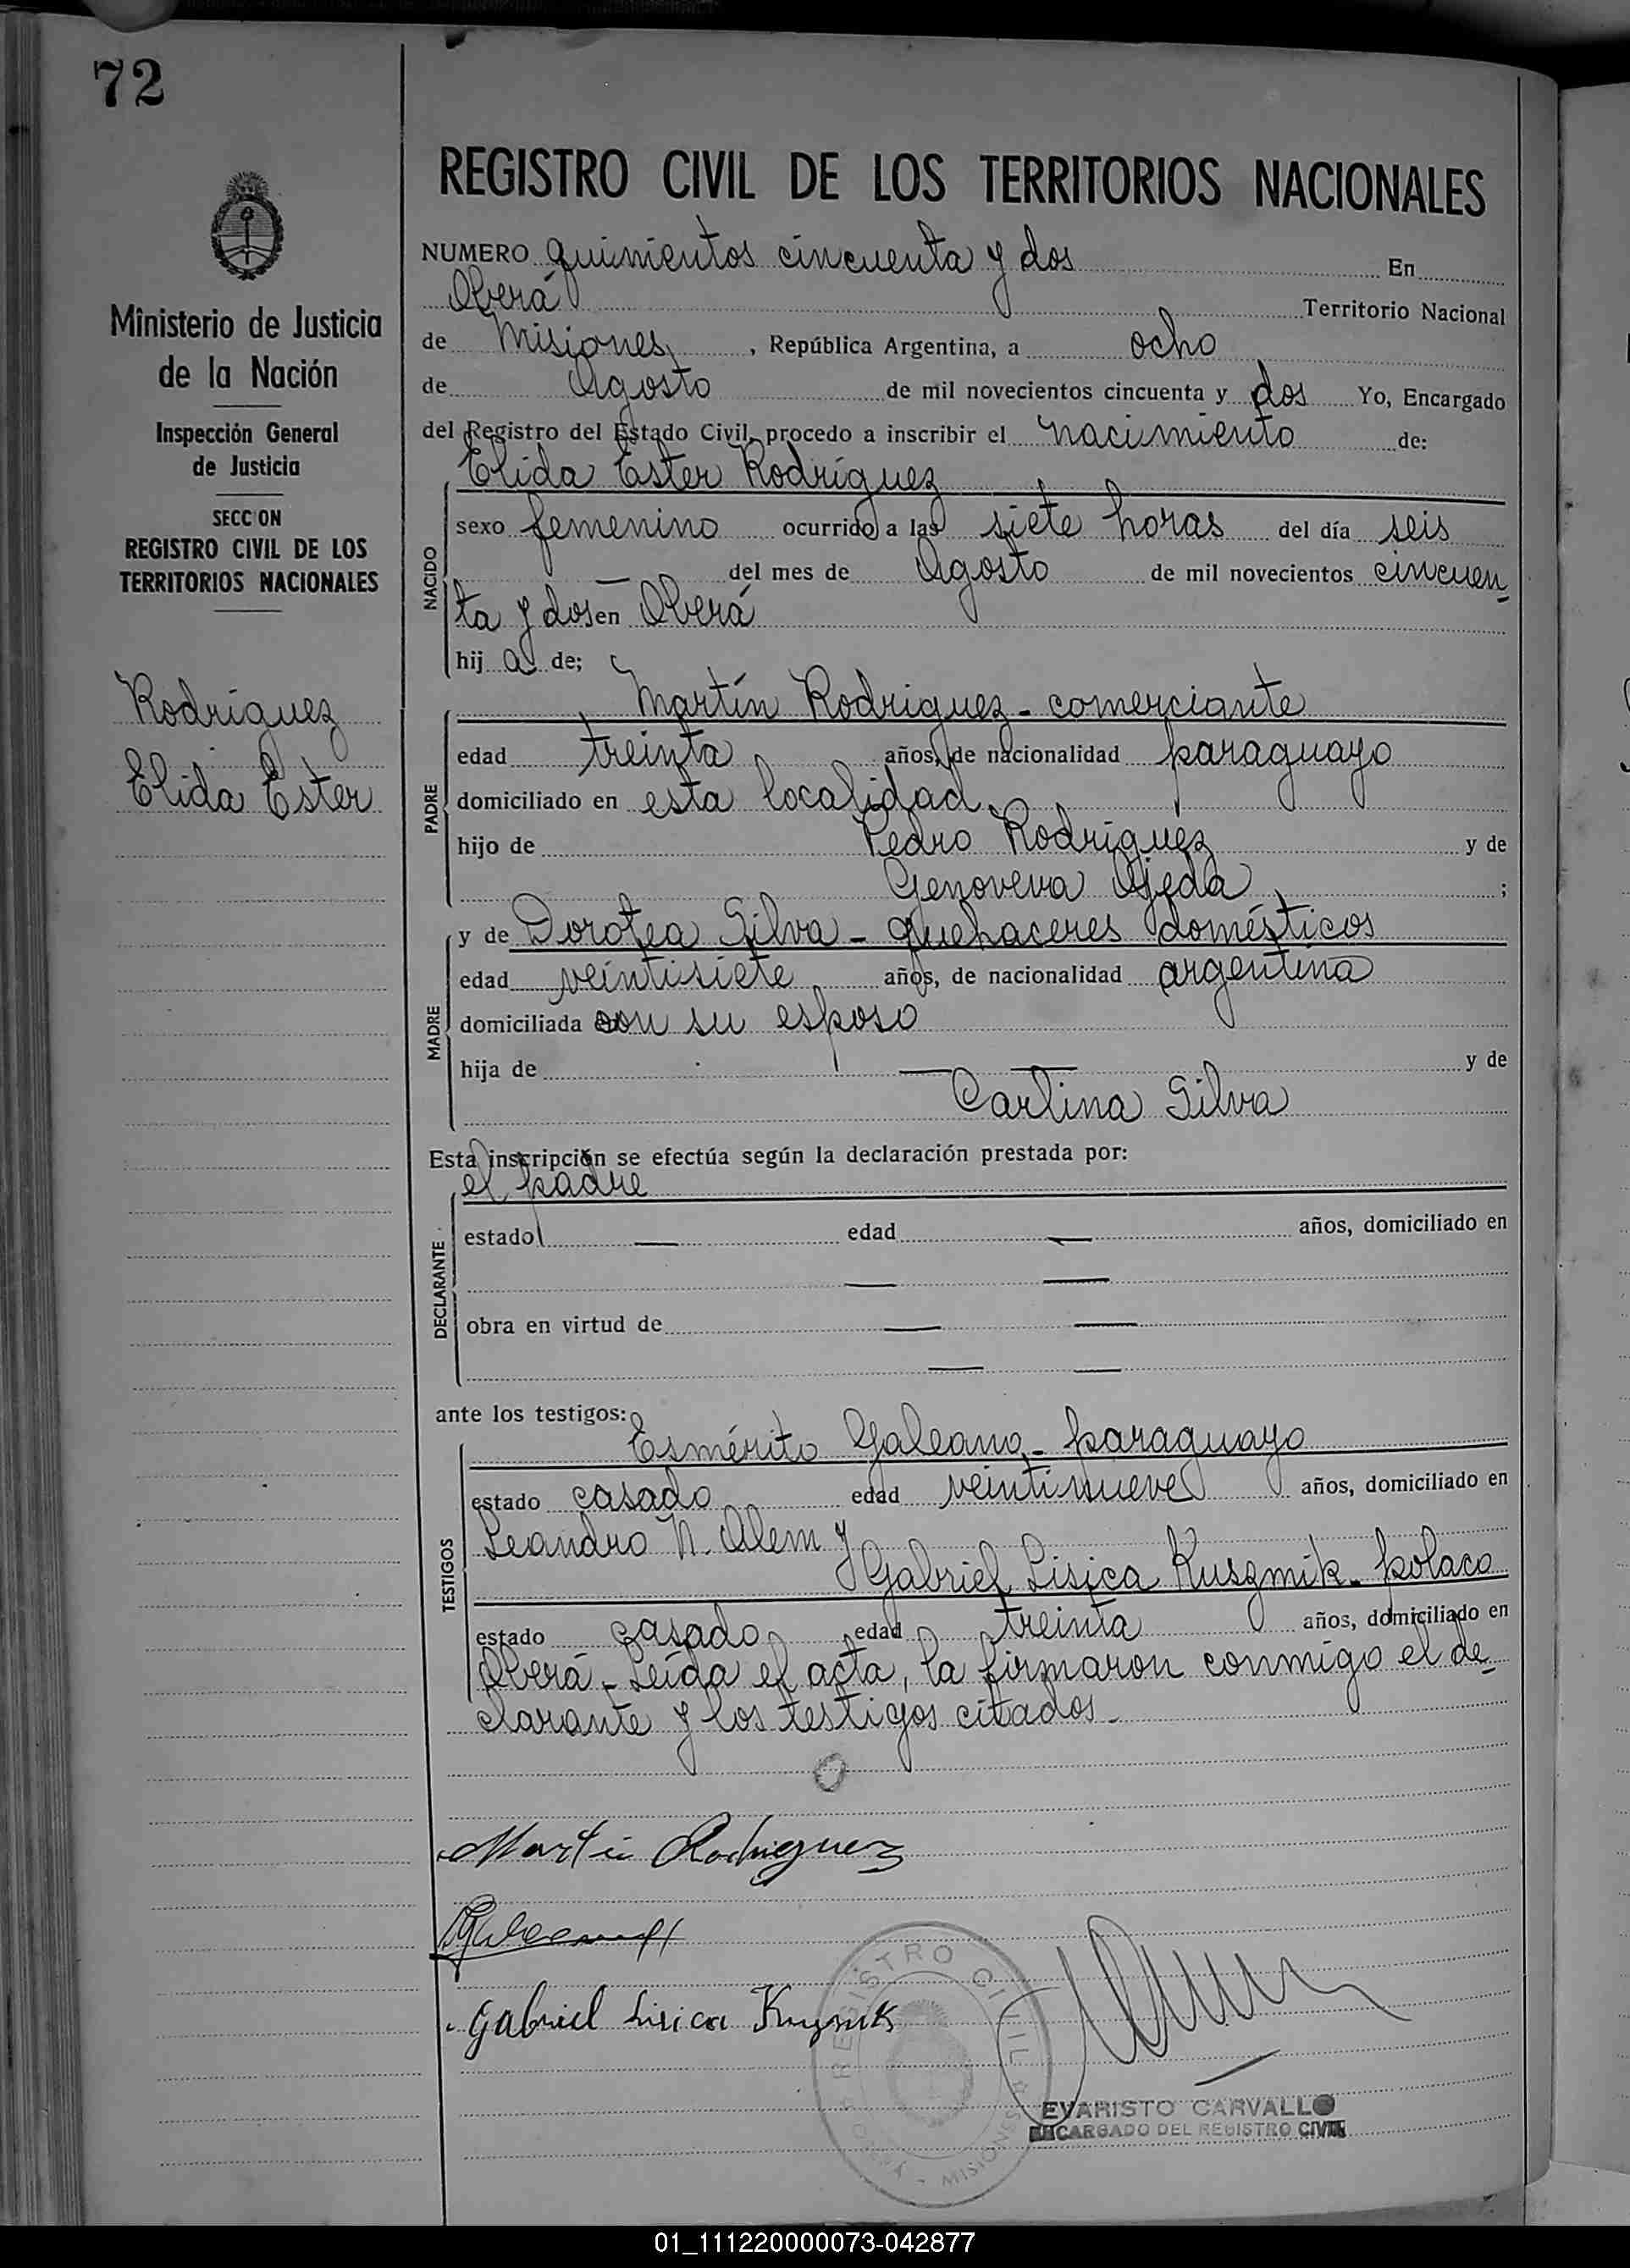 72
Ministerio de Justicia
de la Nación
Inspección General
de Justicia
SECCION
REGISTRO CIVIL DE LOS
TERRITORIOS NACIONALES
Rodríguez
Elida Ester
REGISTRO CIVIL DE LOS TERRITORIOS NACIONALES
NUMERO quinientos cincuenta y dos En
Oberá Territorio Nacional
de Misiones, República Argentina, a ocho
de Agosto de mil novecientos cincuenta y dos Yo, Encargado
del Registro del Estado Civil, procedo a inscribir el nacimiento de:
Elida Ester Rodríguez
NACIDO
sexo femenino ocurrido a las siete horas del día seis
— del mes de Agosto de mil novecientos cincuen-
ta y dos en Oberá
hij a de;
Martín Rodríguez - comerciante
PADRE
edad treinta años, de nacionalidad paraguayo
domiciliado en esta localidad,
hijo de Pedro Rodríguez y de
Genoveva Ojeda ;
y de Dorotea Silva - quehaceres domésticos
MADRE
edad veintisiete años, de nacionalidad argentina
domiciliada con su esposo
hija de — — y de
Carlina Silva
Esta inscripción se efectúa según la declaración prestada por:
el padre
DECLARANTE
estado — edad — años, domiciliado en
— —
obra en virtud de — —
— —
ante los testigos:
Esmérito Galeano - paraguayo
TESTIGOS
estado casado edad veintinueve años, domiciliado en
Leandro N. Alem y
Gabriel Lisica Kuszmik - polaco
estado casado edad treinta años, domiciliado en
Oberá - Leída el acta, la firmaron conmigo el de-
clarante y los testigos citados -
Martin Rodriguez
Gabriel Lisica
REGISTRO CIVIL
OBERÁ - MISIONES
EVARISTO CARVALLO
ENCARGADO DEL REGISTRO CIVIL
01_111220000073-042877